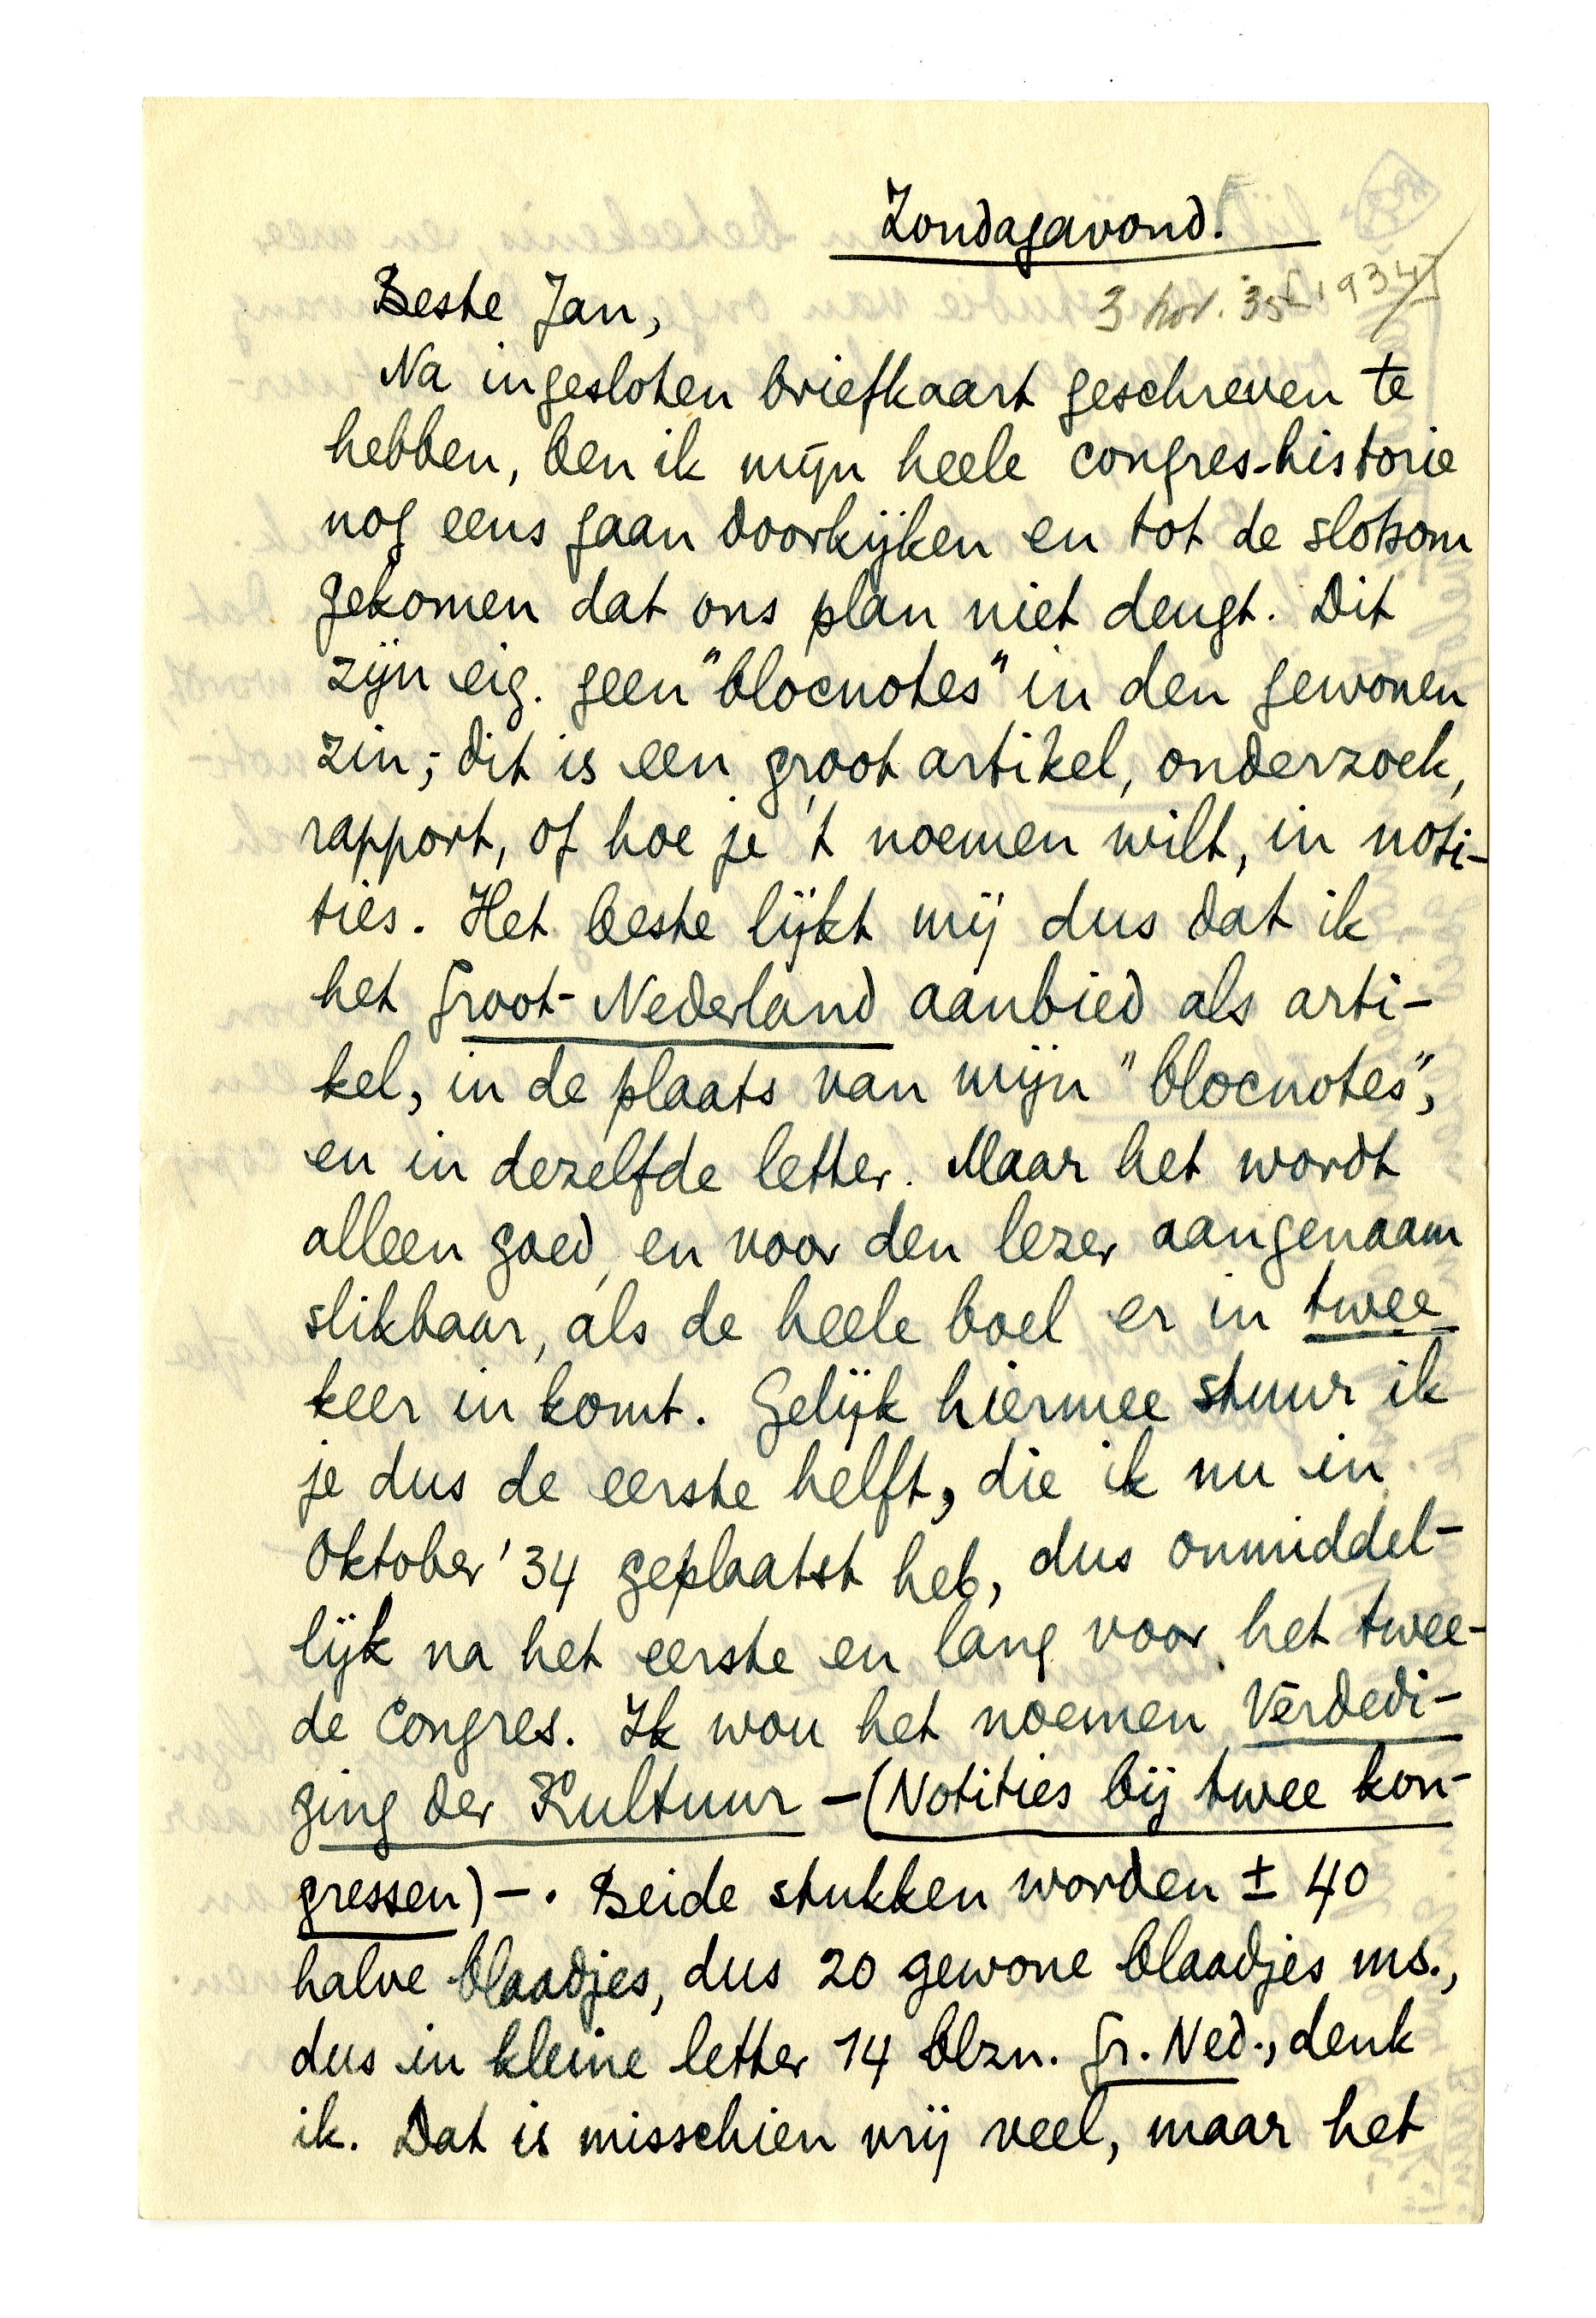 Zondagavond.
3 nov. 35 [1934]
Beste Jan,
Na ingesloten briefkaart geschreven te
hebben, ben ik mijn heele congres-historie
nog eens gaan doorkijken en tot de slotsom
gekomen dat ons plan niet deugt. Dit
zijn eig. geen "blocnotes" in den gewonen
zin; dit is een groot artikel, onderzoek,
rapport, of hoe je 't noemen wilt, in noti-
ties. Het beste lijkt mij dus dat ik
het Groot-Nederland aanbied als arti-
kel, in de plaats van mijn "blocnotes",
en in dezelfde letter. Maar het wordt
alleen goed, en voor den lezer aangenaam
slikbaar, als de heele boel er in twee
keer in komt. Gelijk hiermee stuur ik
je dus de eerste helft, die ik nu in
Oktober '34 geplaatst heb, dus onmiddel-
lijk na het eerste en lang voor het twee-
de Congres. Ik wou het noemen Verdedi-
ging der Kultuur – (Notities bij twee kon-
gressen) –. Beide stukken worden ± 40
halve blaadjes, dus 20 gewone blaadjes ms.,
dus in kleine letter 14 blzn. Gr. Ned., denk
ik. Dat is misschien vrij veel, maar het